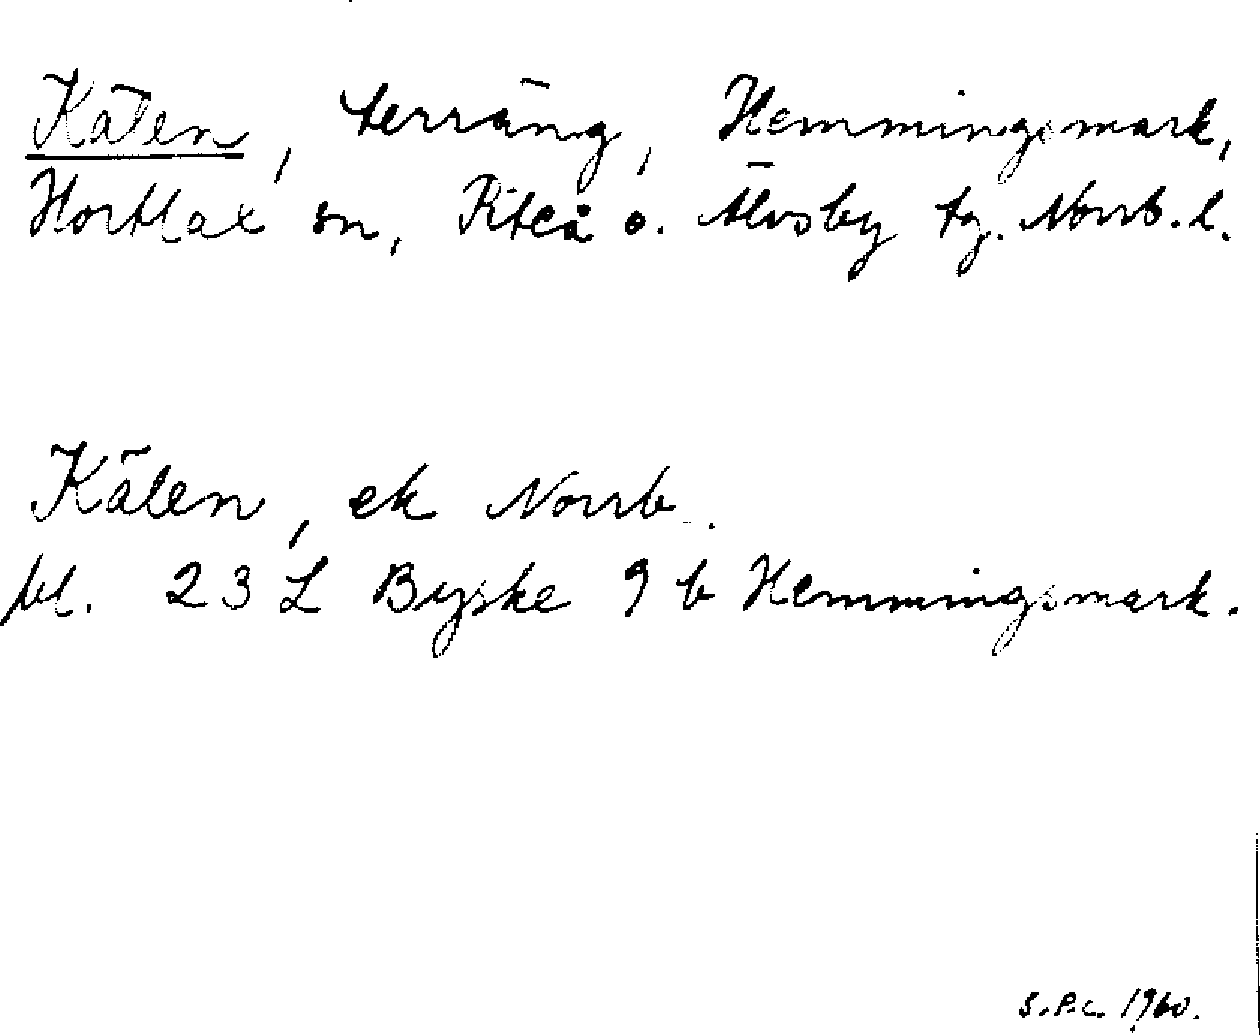 Kälen, terräng, Hemmingsmark,
Hortlax sn, Piteå o. Älvsby tg. Norrb. l.
Kälen, ek Norrb.
bl. 23 L Byske 9 b Hemmingsmark.
S.P.C. 1960.